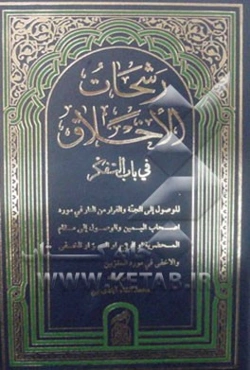 رشحات
الأخلاق
في باب التفكر
للوصول إلى الجنة والفرار من النار في مورد
اصحاب اليمين والوصول إلى مقام
الخفي
والاخفى في مورد المقربين
WWW.KETAB.IR